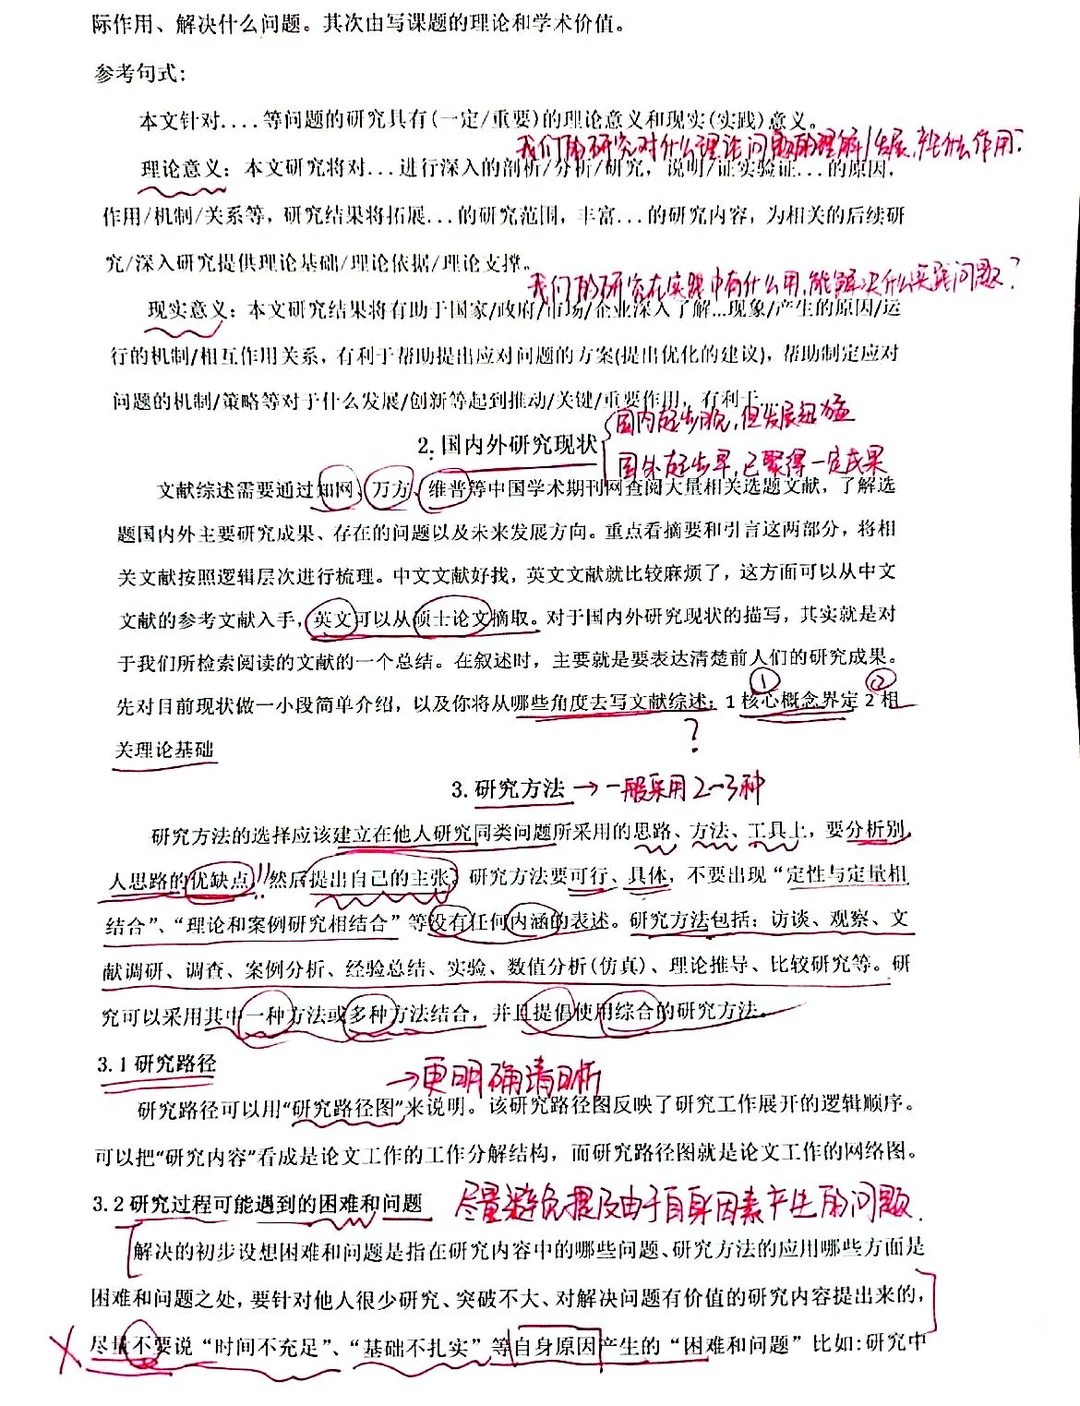 际作用、解决什么问题。其次由写课题的理论和学术价值。
参考句式：
本文针对....等问题的研究具有(一定/重要)的理论意义和现实(实践)意义。
我们的研究对什么理论问题的理解/发展,产生什么作用?
理论意义：本文研究将对...进行深入的剖析/分析/研究，说明/证实验证...的原因，
作用/机制/关系等，研究结果将拓展...的研究范围，丰富...的研究内容，为相关的后续研
究/深入研究提供理论基础/理论依据/理论支撑。
我们的研究在实践中有什么用,能解决什么实践问题?
现实意义：本文研究结果将有助于国家/政府/市场/企业深入了解...现象/产生的原因/运
行的机制/相互作用关系，有利于帮助提出应对问题的方案(提出优化的建议)，帮助制定应对
问题的机制/策略等对于什么发展/创新等起到推动/关键/重要作用，有利于....
国内起步晚,但发展迅猛
2. 国内外研究现状
国外起步早,已取得一定成果
文献综述需要通过知网、万方、维普等中国学术期刊网查阅大量相关选题文献，了解选
题国内外主要研究成果、存在的问题以及未来发展方向。重点看摘要和引言这两部分，将相
关文献按照逻辑层次进行梳理。中文文献好找，英文文献就比较麻烦了，这方面可以从中文
文献的参考文献入手，英文可以从硕士论文摘取。对于国内外研究现状的描写，其实就是对
于我们所检索阅读的文献的一个总结。在叙述时，主要就是要表达清楚前人们的研究成果。
① ②
先对目前现状做一小段简单介绍，以及你将从哪些角度去写文献综述：1 核心概念界定 2 相
?
关理论基础
3. 研究方法 →一般采用2~3种
研究方法的选择应该建立在他人研究同类问题所采用的思路、方法、工具上，要分析别
人思路的优缺点，!!然后提出自己的主张。研究方法要可行、具体，不要出现“定性与定量相
结合”、“理论和案例研究相结合”等没有任何内涵的表述。研究方法包括：访谈、观察、文
献调研、调查、案例分析、经验总结、实验、数值分析(仿真)、理论推导、比较研究等。研
究可以采用其中一种方法或多种方法结合，并且提倡使用综合的研究方法。
3.1 研究路径
→更明确清晰
研究路径可以用“研究路径图”来说明。该研究路径图反映了研究工作展开的逻辑顺序。
可以把“研究内容”看成是论文工作的工作分解结构，而研究路径图就是论文工作的网络图。
3.2 研究过程可能遇到的困难和问题 尽量避免提及由于自身因素产生的问题.
解决的初步设想困难和问题是指在研究内容中的哪些问题、研究方法的应用哪些方面是
困难和问题之处，要针对他人很少研究、突破不大、对解决问题有价值的研究内容提出来的，
尽量不要说“时间不充足”、“基础不扎实”等自身原因产生的“困难和问题”比如：研究中